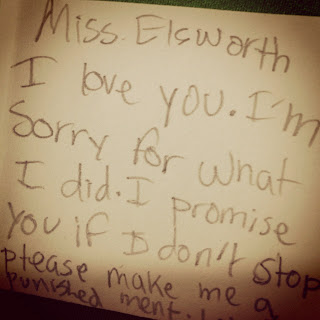 Miss. Elsworth
I love you. I'm
Sorry for what
I did. I promise
you if I don't stop
please make me a
punished ment.